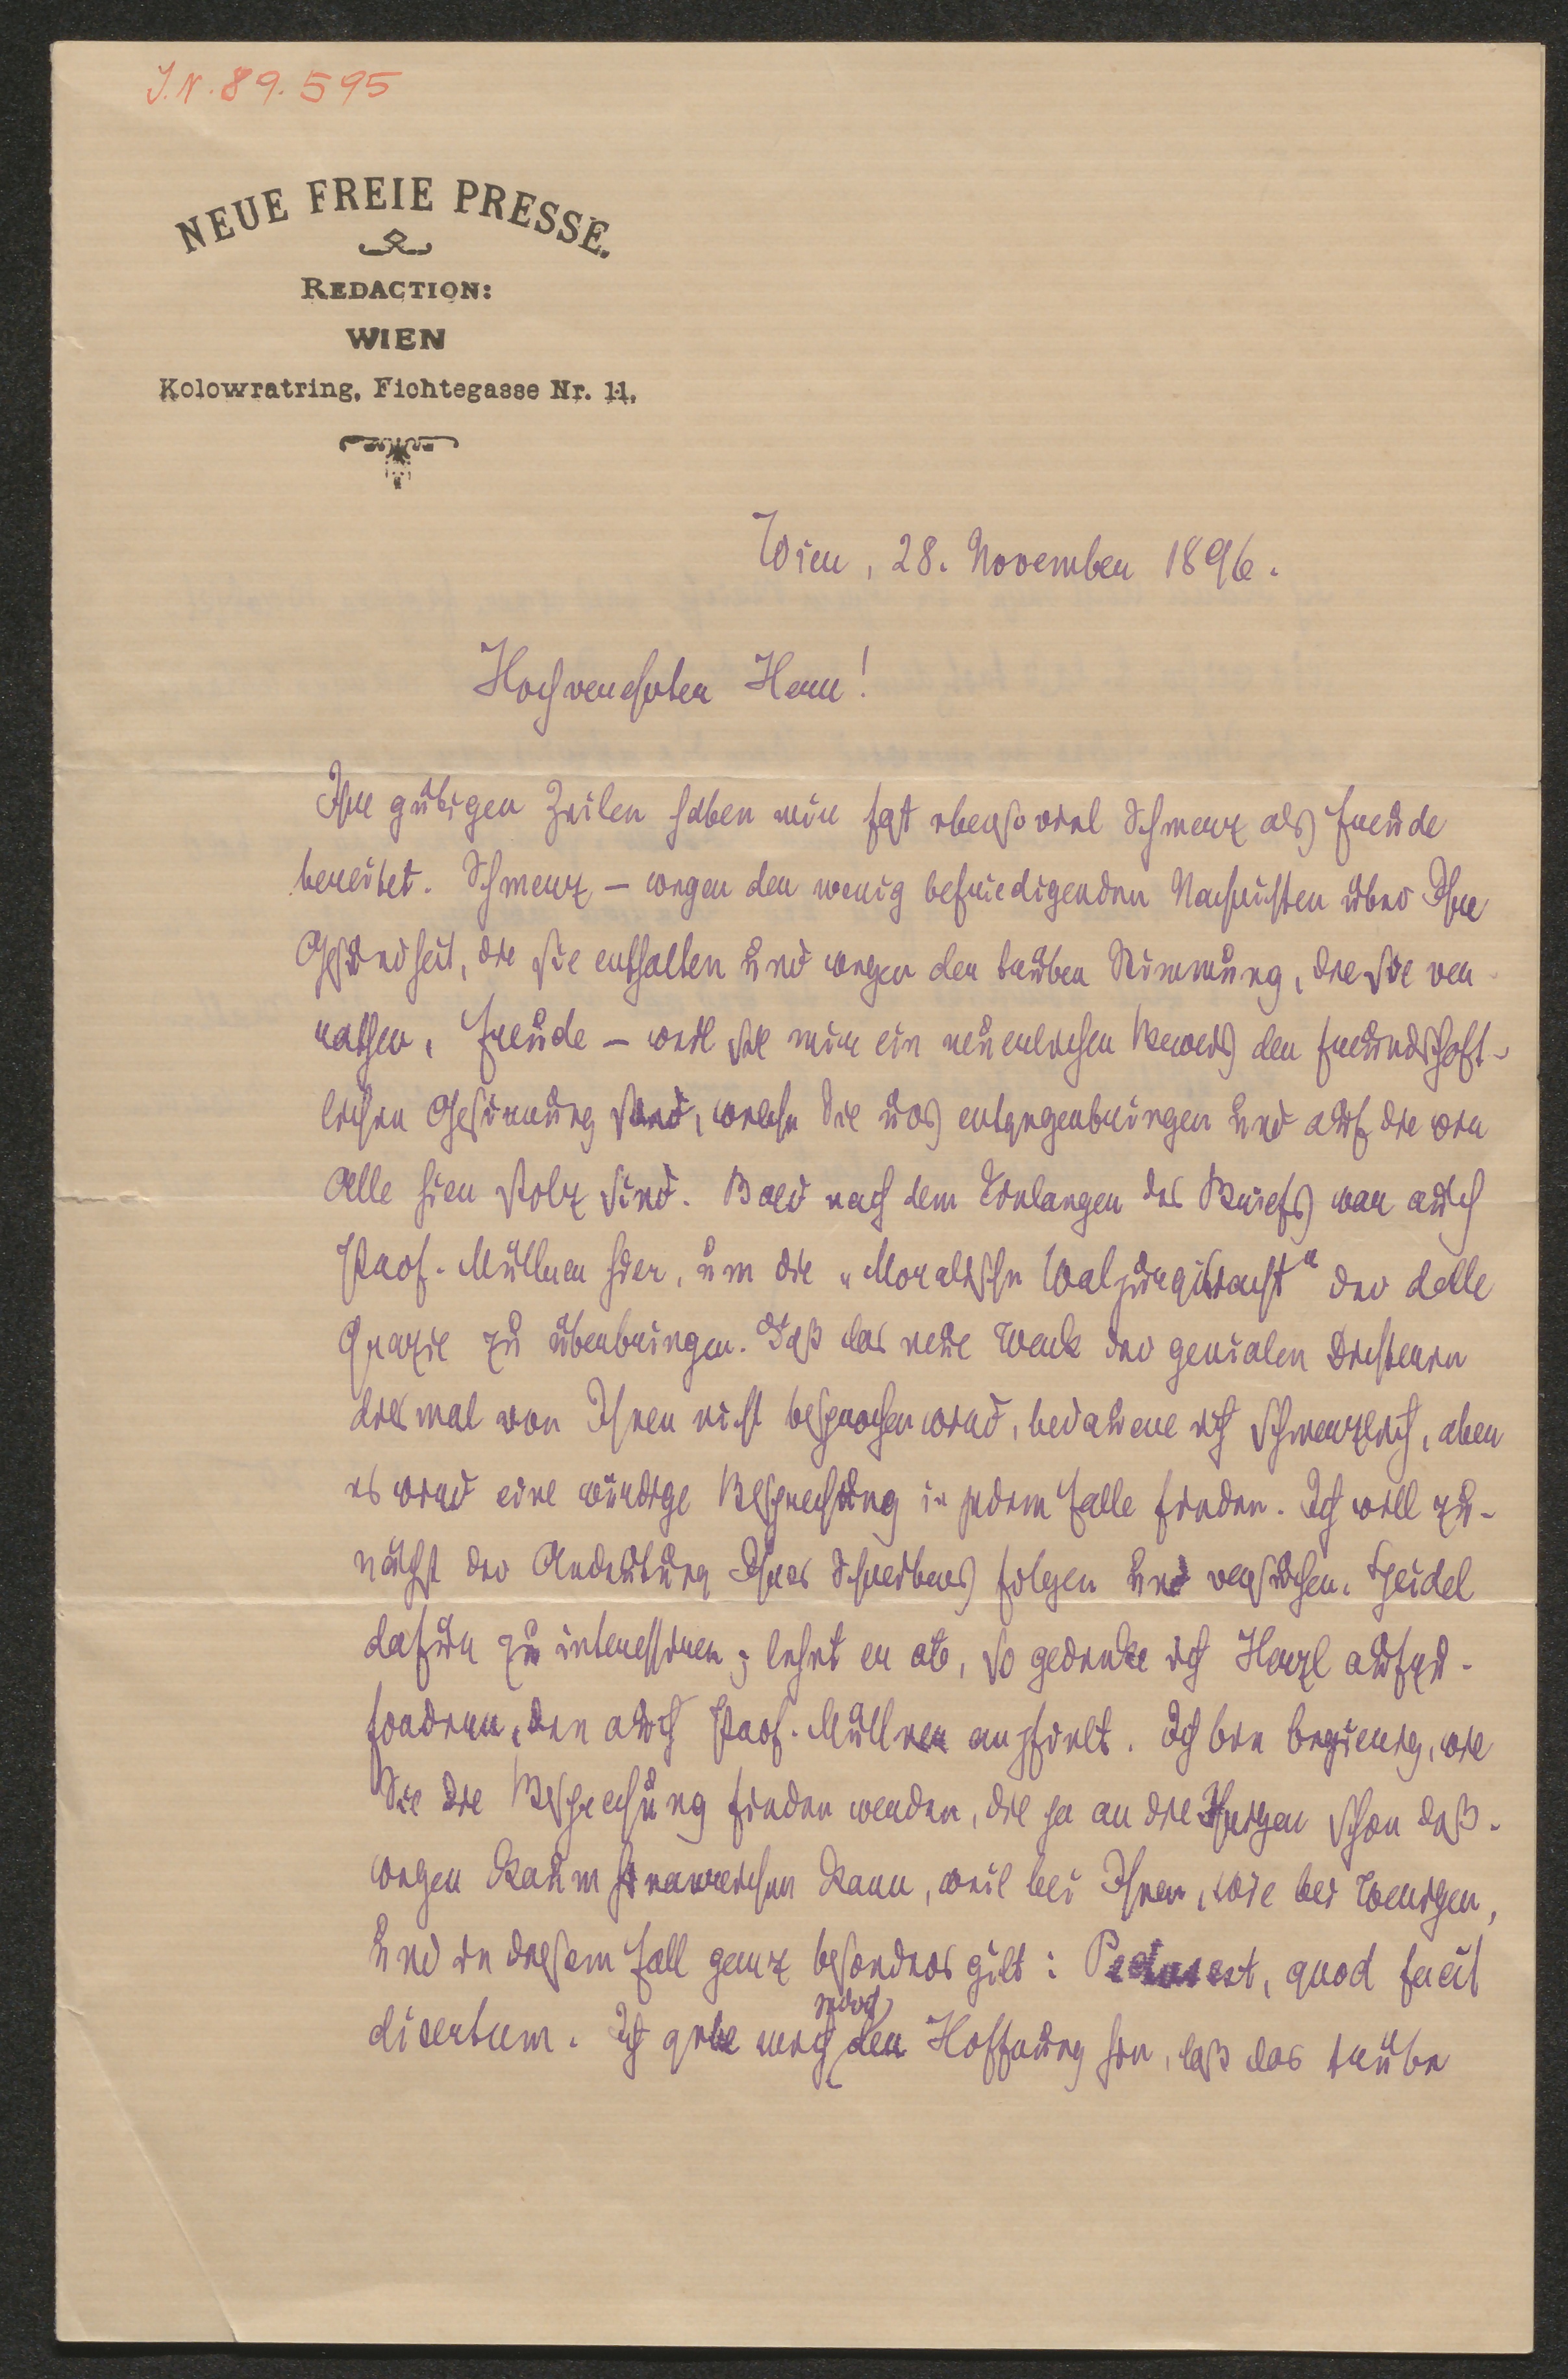 J.N. 89.595
NEUE FREIE PRESSE.
REDACTION:
WIEN
Kolowratring, Fichtegasse Nr. 11.
Wien, 28. November 1896.
Hochverehrter Herr!
Ihre gütigen Zeilen haben mir fast ebensoviel Schmerz als Freude
bereitet. Schmerz – wegen der wenig befriedigenden Nachrichten über Ihre
Gesundheit, die sie enthalten und wegen der trüben Stimmung, die sie ver
rathen, Freude – weil sie mir ein neuerlicher Beweis der freundschaft-
lichen Gesinnung sind, welche Sie uns entgegenbringen und auf die wir
Alle hier stolz sind. Bald nach dem Einlangen des Briefs war auch
Prof. Müllner hier, um die „Moralische Walpurgisnacht" der delle
Grazie zu überbringen. Daß das neue Werk der genialen Dichterin
diesmal von Ihnen nicht besprochen wird, bedauere ich schmerzlich, aber
es wird eine würdige Besprechung in jedem Falle finden. Ich will zu-
nächst der Andeutung Ihres Schreibens folgen und versuchen, Speidel
dafür zu interessiren; lehnt er ab, so gedenke ich Herzl aufzu-
fordern, den auch Prof. Müllner empfielt. Ich bin begierig, wie
Sie die Besprechung finden werden, die ja an die Ihrigen schon deß-
wegen kaum hinanreichen kann, weil bei Ihnen, wie bei Wenigen,
und in diesem Fall ganz besonders gilt: Pectus est, quod facit
disertum. Ich gebe mich indeß der Hoffnung hin, daß das trübe